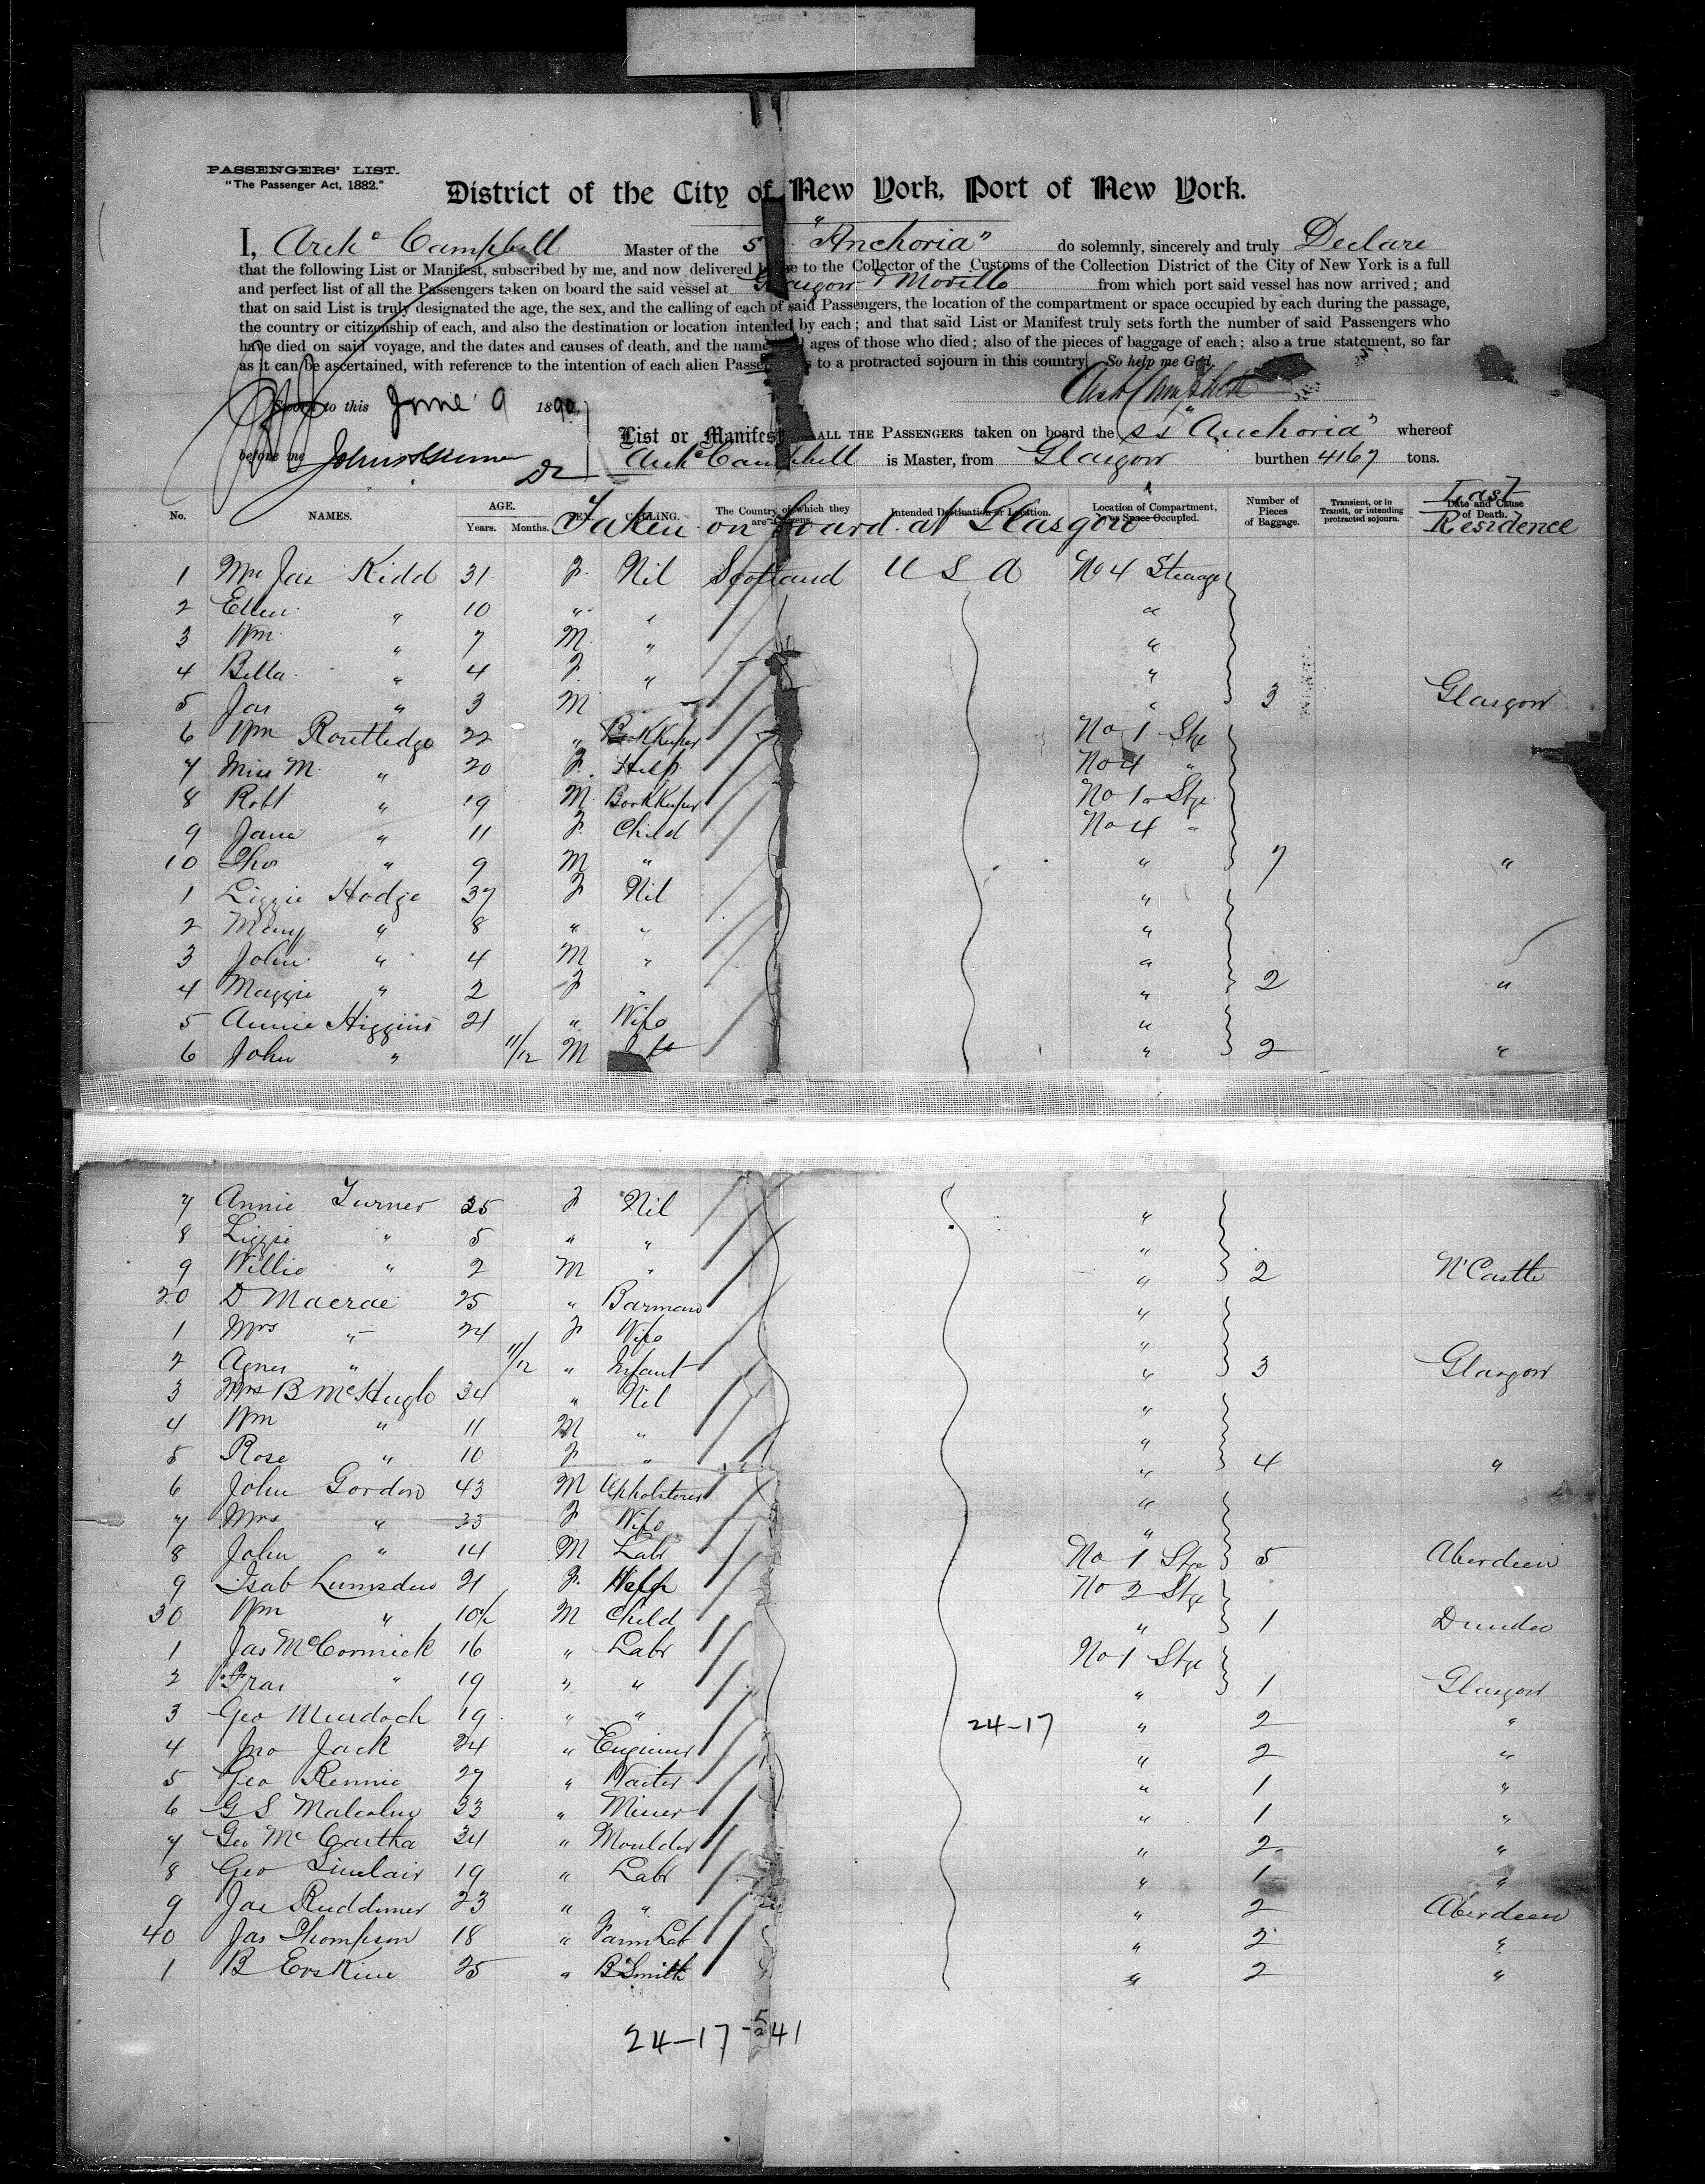 PASSENGERS' LIST.
"The Passenger Act, 1882."
District of the City of New York, Port of New York.
I, Archd Campbell Master of the SS "Anchoria" do solemnly, sincerely and truly Declare
that the following List or Manifest, subscribed by me, and now delivered by me to the Collector of the Customs of the Collection District of the City of New York is a full
and perfect list of all the Passengers taken on board the said vessel at Glasgow & Moville from which port said vessel has now arrived; and
that on said List is truly designated the age, the sex, and the calling of each of said Passengers, the location of the compartment or space occupied by each during the passage,
the country or citizenship of each, and also the destination or location intended by each; and that said List or Manifest truly sets forth the number of said Passengers who
have died on said voyage, and the dates and causes of death, and the names and ages of those who died; also of the pieces of baggage of each; also a true statement, so far
as it can be ascertained, with reference to the intention of each alien Passenger as to a protracted sojourn in this country. So help me God,
Arch Campbell
Sworn to this June 9 1890
before me
List or Manifest ALL THE PASSENGERS taken on board the SS "Anchoria" whereof
Archd Campbell is Master, from Glasgow burthen 4167 tons.
No. NAMES. AGE. Years. Months. SEX. CALLING. The Country of which they are Citizens. Intended Destination or Location. Location of Compartment, or Space Occupied. Number of Pieces of Baggage. Transient, or in Transit, or intending protracted sojourn. Date and Cause of Death.
Last Residence
Taken on board at Glasgow
1 Mrs Jas Kidd 31 F Nil Scotland U S A No 4 Steerage
2 Ellen " 10 " " "
3 Wm " 7 M " "
4 Bella " 4 F " "
5 Jas " 3 M " " 3 Glasgow
6 Wm Routledge 22 " BookKeeper No 1 Stge
7 Miss M " 20 F Help No 4 "
8 Robt " 19 M BookKeeper No 1 Stge
9 Jane " 11 F Child No 4 "
10 Thos " 9 M " " 7 "
1 Lizzie Hodge 37 F Nil "
2 Mary " 8 " " "
3 John " 4 M " "
4 Maggie " 2 F " " 2 "
5 Annie Higgins 21 " Wife "
6 John " 11/12 M " 2 "
7 Annie Turner 25 F Nil "
8 Lizzie " 5 " " "
9 Willie " 2 M " " 2 N'Castle
20 D Macrae 25 " Barman "
1 Mrs " 24 F Wife "
2 Agnes " 11/12 " Infant " 3 Glasgow
3 Mrs B McHugh 34 " Nil "
4 Wm " 11 M " "
5 Rose " 10 F " " 4 "
6 John Gordon 43 M Upholsterer "
7 Mrs " 33 F Wife "
8 John " 14 M Labr No 1 Stge 5 Aberdeen
9 Isab Lumsden 21 F No 2 Stge
30 Wm " 10½ M Child " 1 Dundee
1 Jas McCormick 16 " Labr No 1 Stge
2 Fras " 19 " " " 1 Glasgow
3 Geo Murdoch 19 " " 24-17 " 2 "
4 Jno Jack 24 " Engineer " 2 "
5 Geo Rennie 27 " Waiter " 1 "
6 G S Malcolm 33 " Miner " 1 "
7 Geo McCartha 34 " Moulder " 2 "
8 Geo Sinclair 19 " Labr " 1 "
9 Jas Ruddimer 23 " " " 2 Aberdeen
40 Jas Thompson 18 " Farm Lab " 2 "
1 B Erskine 25 " B'Smith " 2 "
24-17 - 41